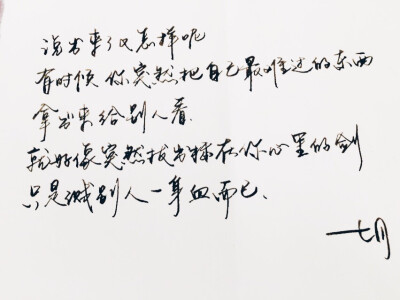 说出来又怎样呢
有时候你突然把自己最难过的东西
拿出来给别人看.
就好像突然拔出插在你心里的剑
只是溅别人一身血而已.
—七月